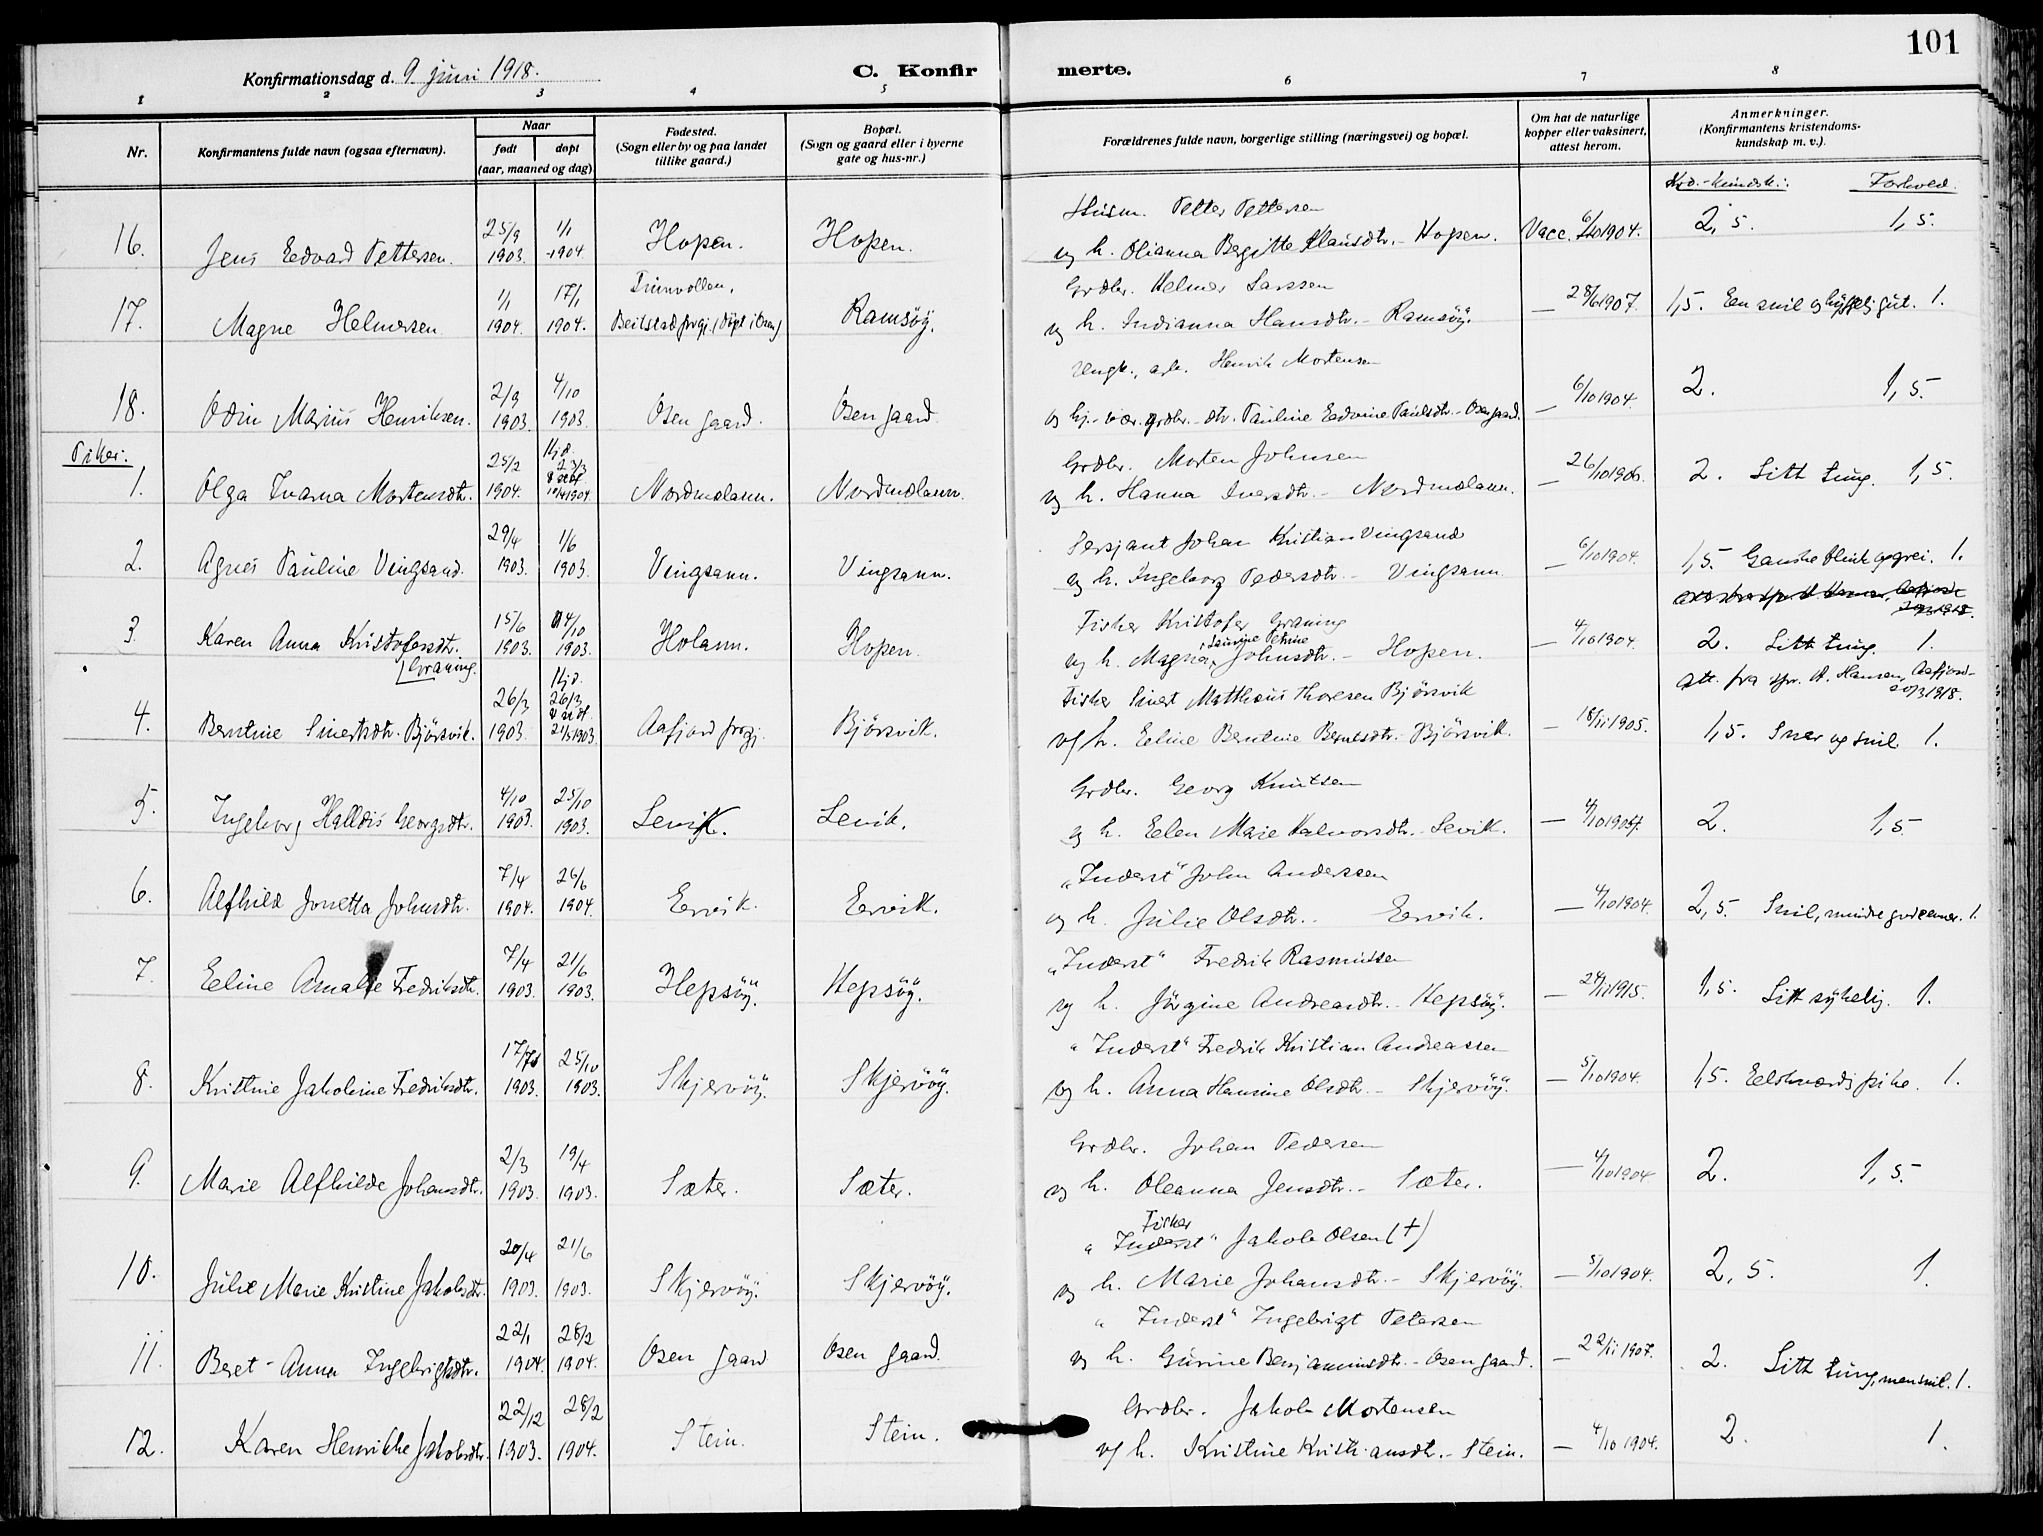 101
Konfirmationsdag d. 9 juni 1918.
C. Konfirmerte.
1 2 3 4 5 6 7 8
Nr.
Konfirmantens fulde navn (ogsaa efternavn).
Naar
født
døpt
(aar, maaned og dag)
Fødested.
(Sogn eller by og paa landet
tillike gaard.)
Bopæl.
(Sogn og gaard eller i byerne
gate og hus-nr.)
Forældrenes fulde navn, borgerlige stilling (næringsvei) og bopæl.
Om hat de naturlige
kopper eller vaksinert,
attest herom.
Anmerkninger.
(Konfirmantens kristendoms-
kundskap m. v.).
Krd.-kundsk.: Forhold.
Husm. Petter Pettersen
16. Jens Edvard Pettersen. 25/9 1903. 1/1 1904 Hopen. Hopen. og h. Olianna Bergitte Klausdtr. - Hopen. Vacc. 6/10 1904. 2,5. 1,5.
Grdbr. Helmer Larssen
17. Magne Helmersen 1/1 1904. 17/1 1904. Beitstad prgj. (døpt i Osen) Ramsöy. og h. Indianna Hansdtr. - Ramsöy. — 28/6 1907. 1,5. Een snil og hyggelig gut. 1.
Ungk., arb. Henrik Mortensen
18. Odin Marius Henriksen. 2/9 1903. 4/10 1903. Osen gaard. Osen gaard. og hj.-vær. grdbr.-dtr. Pauline Edvine Paulsdtr. - Osen gaard. — 6/10 1904. 2. 1,5.
Piker:
Grdbr. Morten Johnsen
1. Olga Ivarna Mortensdtr. 25/2 1904. Hjd. 23/3 10/4 1904 Nordmelann. Nordmelann. og h. Hanna Iversdtr. - Nordmelann. — 26/10 1906. 2. Litt tung. 1,5.
Sersjant Johan Kristian Vingsand
2. Agnes Pauline Vingsand. 29/4 1903. 1/6 1903. Vingsann. Vingsann. og h. Ingeborg Pedersdtr. - Vingsann — 6/10 1904. 1,5. Ganske flink og grei. 1.
Fisker Kristofer Graning
3. Karen Anna Kristofersdtr. Graning. 15/6 1903. 4/10 1903. Holann. Hopen. og h. Magna Laurine Petrine Johnsdtr. - Hopen. — 4/10 1904. 2. Litt tung. 1.
Att. fra spr. A. Hansen, Aafjord - 20/3 1918.
Fisker Sivert Mattheus Thoresen Björsvik
4. Berntine Sivertsdtr. Björsvik. 26/3 1903. Hjd. 26/3 21/5 1903. Aafjord prgj. Björsvik. og h. Eeline Berntine Berntsdtr. Björsvik. — 18/11 1905. 1,5. Snar og snil 1.
Grdbr. Georg Knutsen
5. Ingeborg Halldis Georgsdtr. 4/10 1903. 25/10 1903. Sevik. Sevik. og h. Eelen Marie Halvorsdtr. - Sevik. — 4/10 1904. 2. 1,5
"Inderst" John Anderssen
6. Alfhild Jonetta Johnsdtr. 7/4 1904. 26/6 1904. Eervik. Eervik. og h. Julie Olsdtr. - Eervik. — 4/10 1904. 2,5. Snil, mindre gode evner. 1.
"Inderst" Fredrik Rasmussen
7. Eeline Amalie Fredriksdtr. 7/4 1903. 21/6 1903. Hepsöy. Hepsöy. og h. Jörgine Andreasdtr. - Hepsöy. — 24/11 1915. 1,5. Litt sykelig. 1.
"Inderst" Fredrik Kristian Andreassen
8. Kristine Jakobine Fredriksdtr. 1903. 25/10 1903. Skjervöy. Skjervöy. og h. Anna Hansine Olsdtr. - Skjervöy. — 5/10 1904. 1,5. Eelskværdig pike. 1.
Grdbr. Johan Pedersen
9. Marie Alfhilde Johansdtr. 2/3 1903. 19/4 1903. Sæter. Sæter. og h. Oleanna Jensdtr. - Sæter. — 4/10 1904 2. 1,5.
Fisker
"Inderst" Jakob Olsen (+)
10. Julie Marie Kristine Jakobsdtr. 20/4 1903. 21/6 1903. Skjervöy. Skjervöy. og h. Marie Johansdtr. - Skjervöy. — 5/10 1904. 2,5. 1.
"Inderst" Ingebrigt Petersen
11. Beret-Anna Ingebrigtsdtr. 22/1 1904. 28/2 1904. Osen gaard Osen gaard. og h. Gurine Benjaminsdtr. - Osen gaard. — 22/11 1907. 2. Litt tung, men snil. 1.
Grdbr. Jakob Mortensen
12. Karen Henrikke Jakobsdtr. 22/12 1903. 28/2 1904. Stein. Stein. og h. Kristine Kristiansdtr. - Stein. — 4/10 1904. 2. 1.